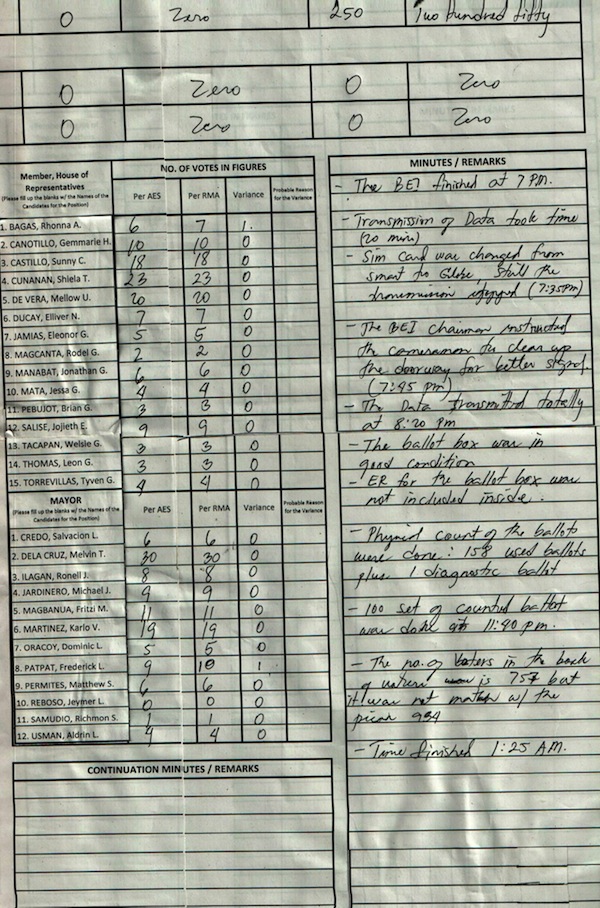 0 Zero 250 Two Hundred Fifty
0 Zero 0 Zero
0 Zero 0 Zero
Member, House of Representatives
(Please fill up the blanks w/ the Names of the Candidates for the Position)
NO. OF VOTES IN FIGURES
Per AES Per RMA Variance Probable Reason for the Variance
1. BAGAS, Rhonna A. 6 7 1.
2. CANOTILLO, Gemmarie H. 10 10 0
3. CASTILLO, Sunny C. 18 18 0
4. CUNANAN, Shiela T. 23 23 0
5. DE VERA, Mellow U. 20 20 0
6. DUCAY, Elliver N. 7 7 0
7. JAMIAS, Eleonor G. 5 5 0
8. MAGCANTA, Rodel G. 2 2 0
9. MANABAT, Jonathan G. 6 6 0
10. MATA, Jessa G. 4 4 0
11. PEBUJOT, Brian G. 3 3 0
12. SALISE, Jojieth E. 9 9 0
13. TACAPAN, Welsie G. 3 3 0
14. THOMAS, Leon G. 3 3 0
15. TORREVILLAS, Tyven G. 4 4 0
MAYOR
(Please fill up the blanks w/ the Names of the Candidates for the Position)
Per AES Per RMA Variance Probable Reason for the Variance
1. CREDO, Salvacion L. 6 6 0
2. DELA CRUZ, Melvin T. 30 30 0
3. ILAGAN, Ronell J. 8 8 0
4. JARDINERO, Michael J. 9 9 0
5. MAGBANUA, Fritzi M. 11 11 0
6. MARTINEZ, Karlo V. 19 19 0
7. ORACOY, Dominic L. 5 5 0
8. PATPAT, Frederick L. 9 10 1
9. PERMITES, Matthew S. 6 6 0
10. REBOSO, Jeymer L. 0 0 0
11. SAMUDIO, Richmon S. 1 1 0
12. USMAN, Aldrin L. 4 4 0
CONTINUATION MINUTES / REMARKS
MINUTES / REMARKS
- The BEI finished at 7 PM.
- Transmission of Data took time
(20 mins)
- Sim Card was changed from
smart to Globe, Still the
transmission (7:35pm)
- The BEI chairman instructed
the cameraman to clear up
the doorway for better signal.
(7:45 pm)
- The Data transmitted totally
at 8:20 pm
- The ballot box was in
good condition
- ER for the ballot box was
not included inside.
- Physical count of the ballots
were done: 158 used ballots
plus 1 diagnostic ballot
- 100 set of counted ballot
was 11:40 pm.
- The no. of Voters in the back
of is 757 but
it was not match w/ the
- Time finished 1:25 AM.